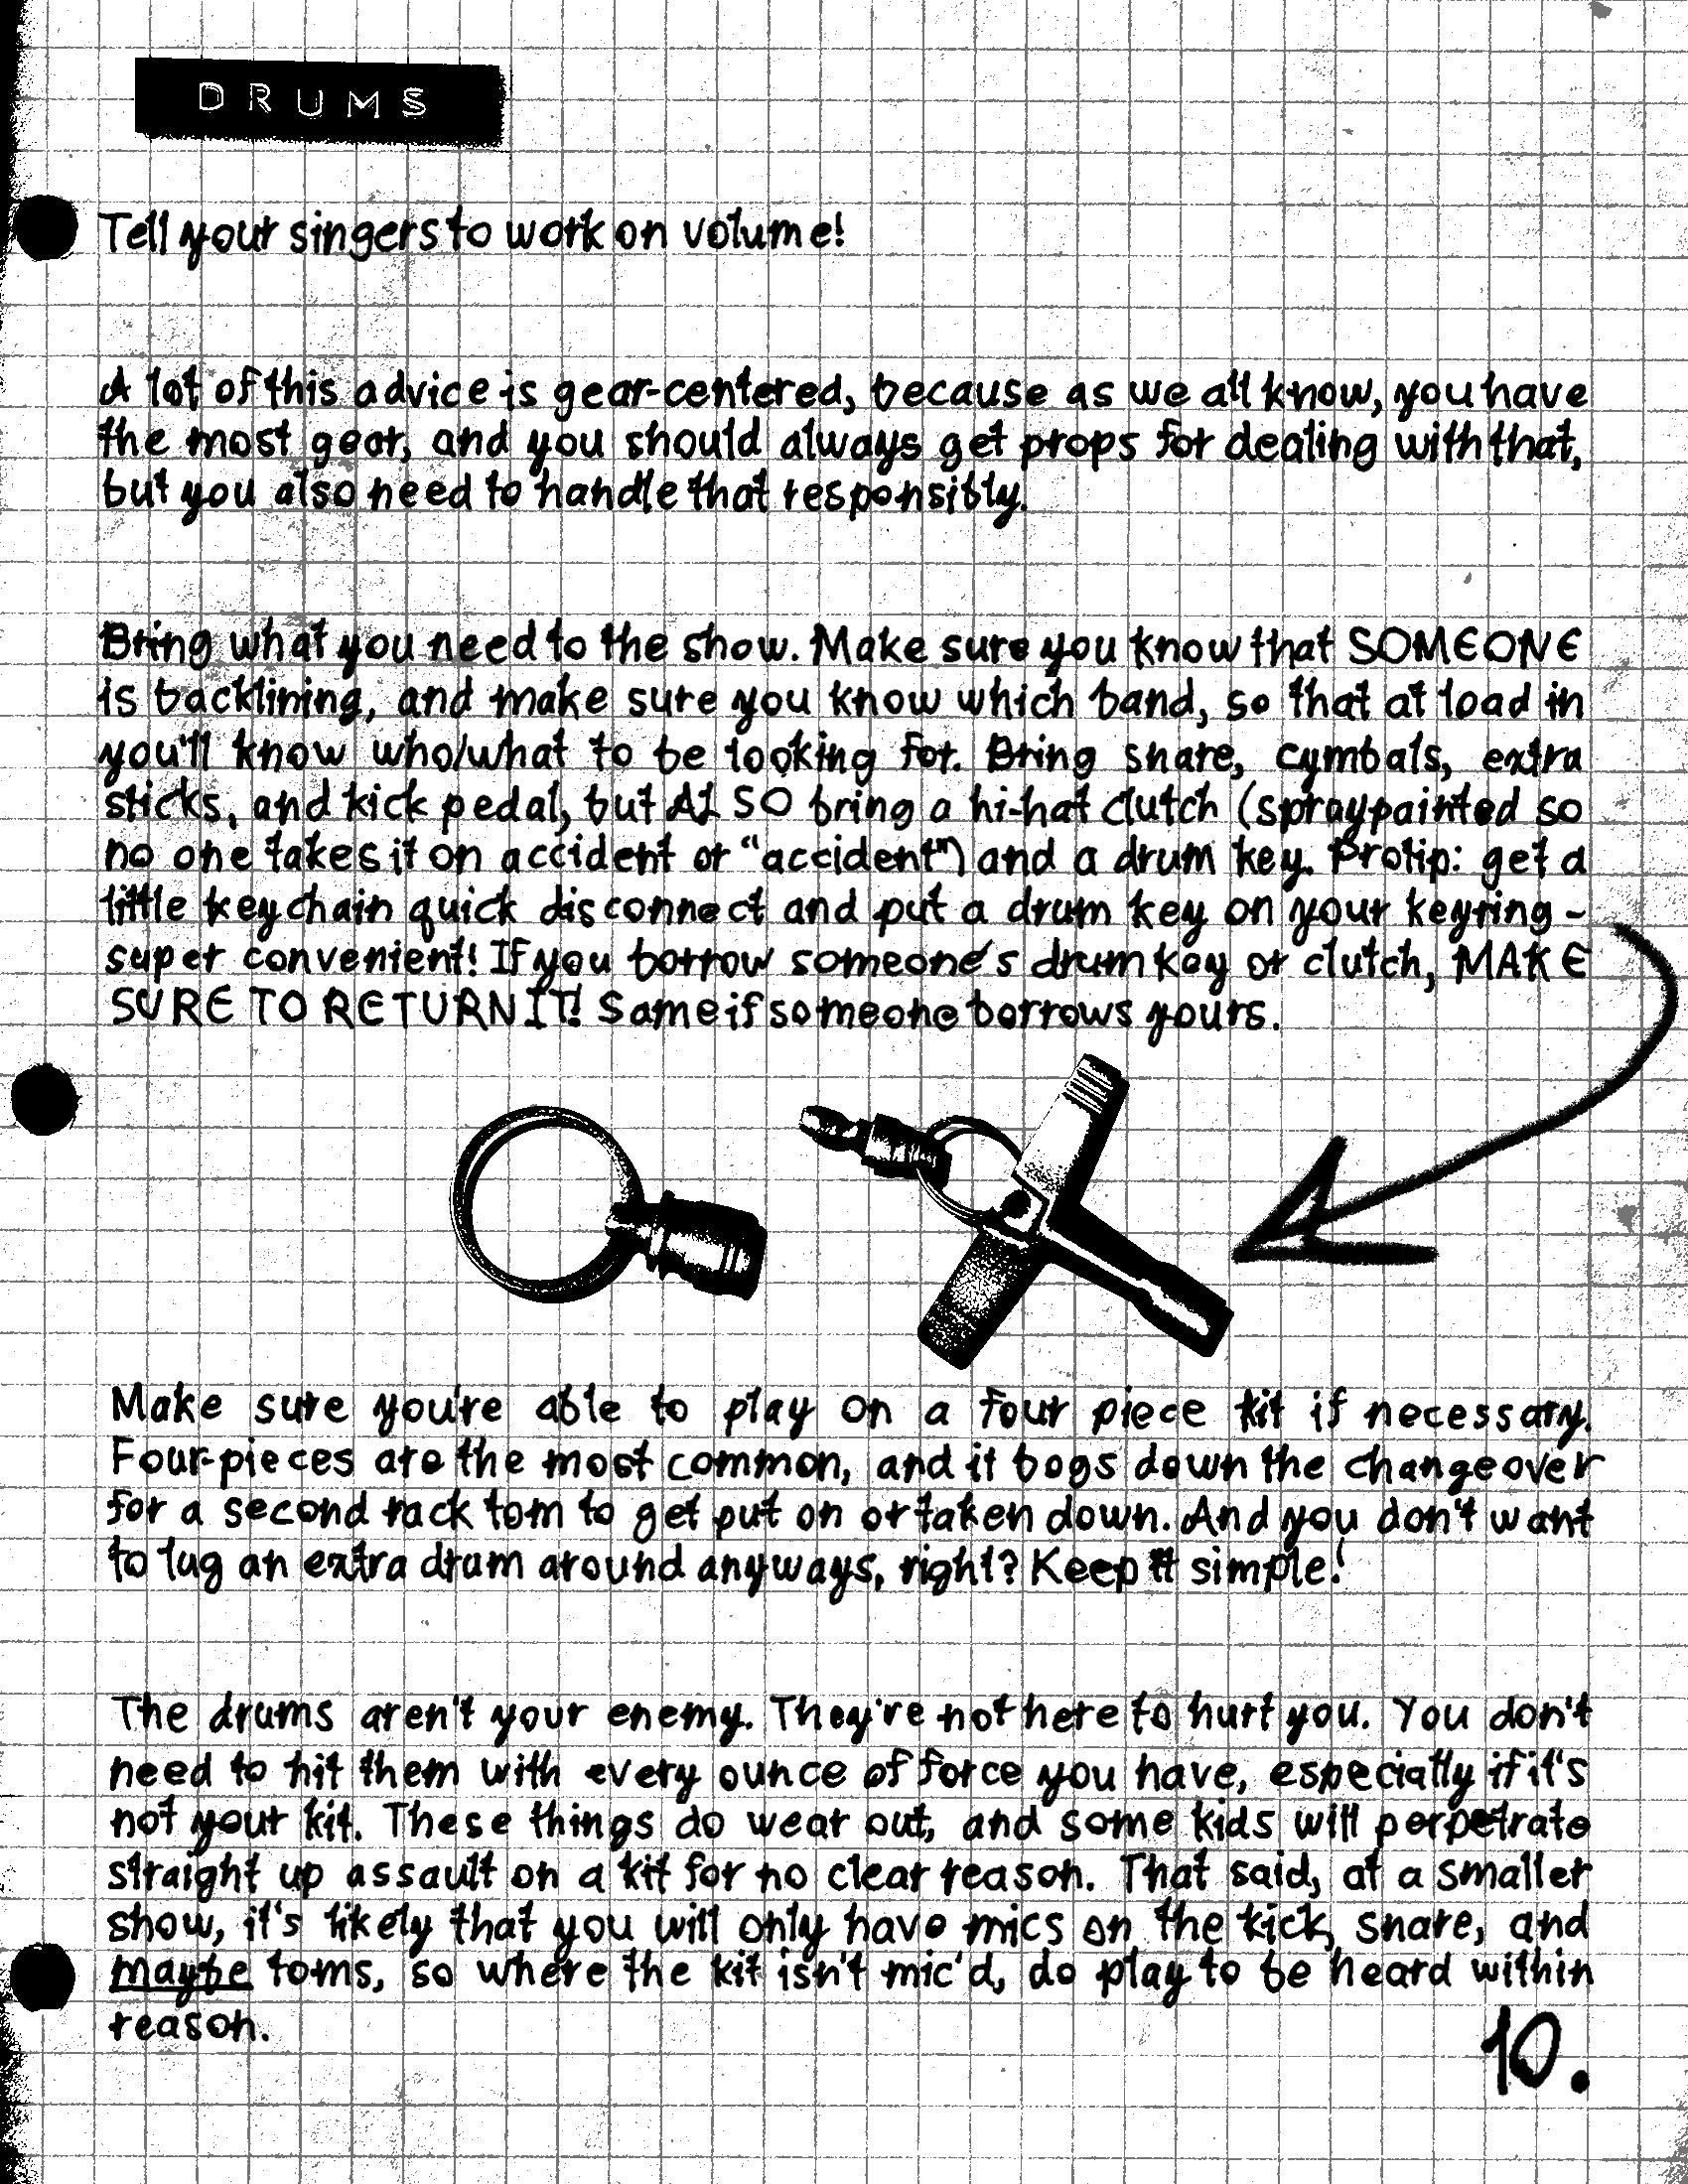 DRUMS
Tell your singers to work on volume!
A lot of this advice is gear-centered, because as we all know, you have
the most gear, and you should always get props for dealing with that,
but you also need to handle that responsibly.
Bring what you need to the show. Make sure you know that SOMEONE
is backlining, and make sure you know which band, so that at load in
you'll know who/what to be looking for. Bring snare, cymbals, extra
sticks, and kick pedal, but ALSO bring a hi-hat clutch (spraypainted so
no one takes it on accident or "accident") and a drum key. Protip: get a
little keychain quick disconnect and put a drum key on your keyring -
super convenient! If you borrow someone's drum key or clutch, MAKE
SURE TO RETURN IT! Same if someone borrows yours.
Make sure you're able to play on a four piece kit if necessary.
Four-pieces are the most common, and it bogs down the changeover
for a second rack tom to get put on or taken down. And you don't want
to lug an extra drum around anyways, right? Keep it simple!
The drums aren't your enemy. They're not here to hurt you. You don't
need to hit them with every ounce of force you have, especially if it's
not your kit. These things do wear out, and some kids will perpetrate
straight up assault on a kit for no clear reason. That said, at a smaller
show, it's likely that you will only have mics on the kick, snare, and
maybe toms, so where the kit isn't mic'd, do play to be heard within
reason.
10.